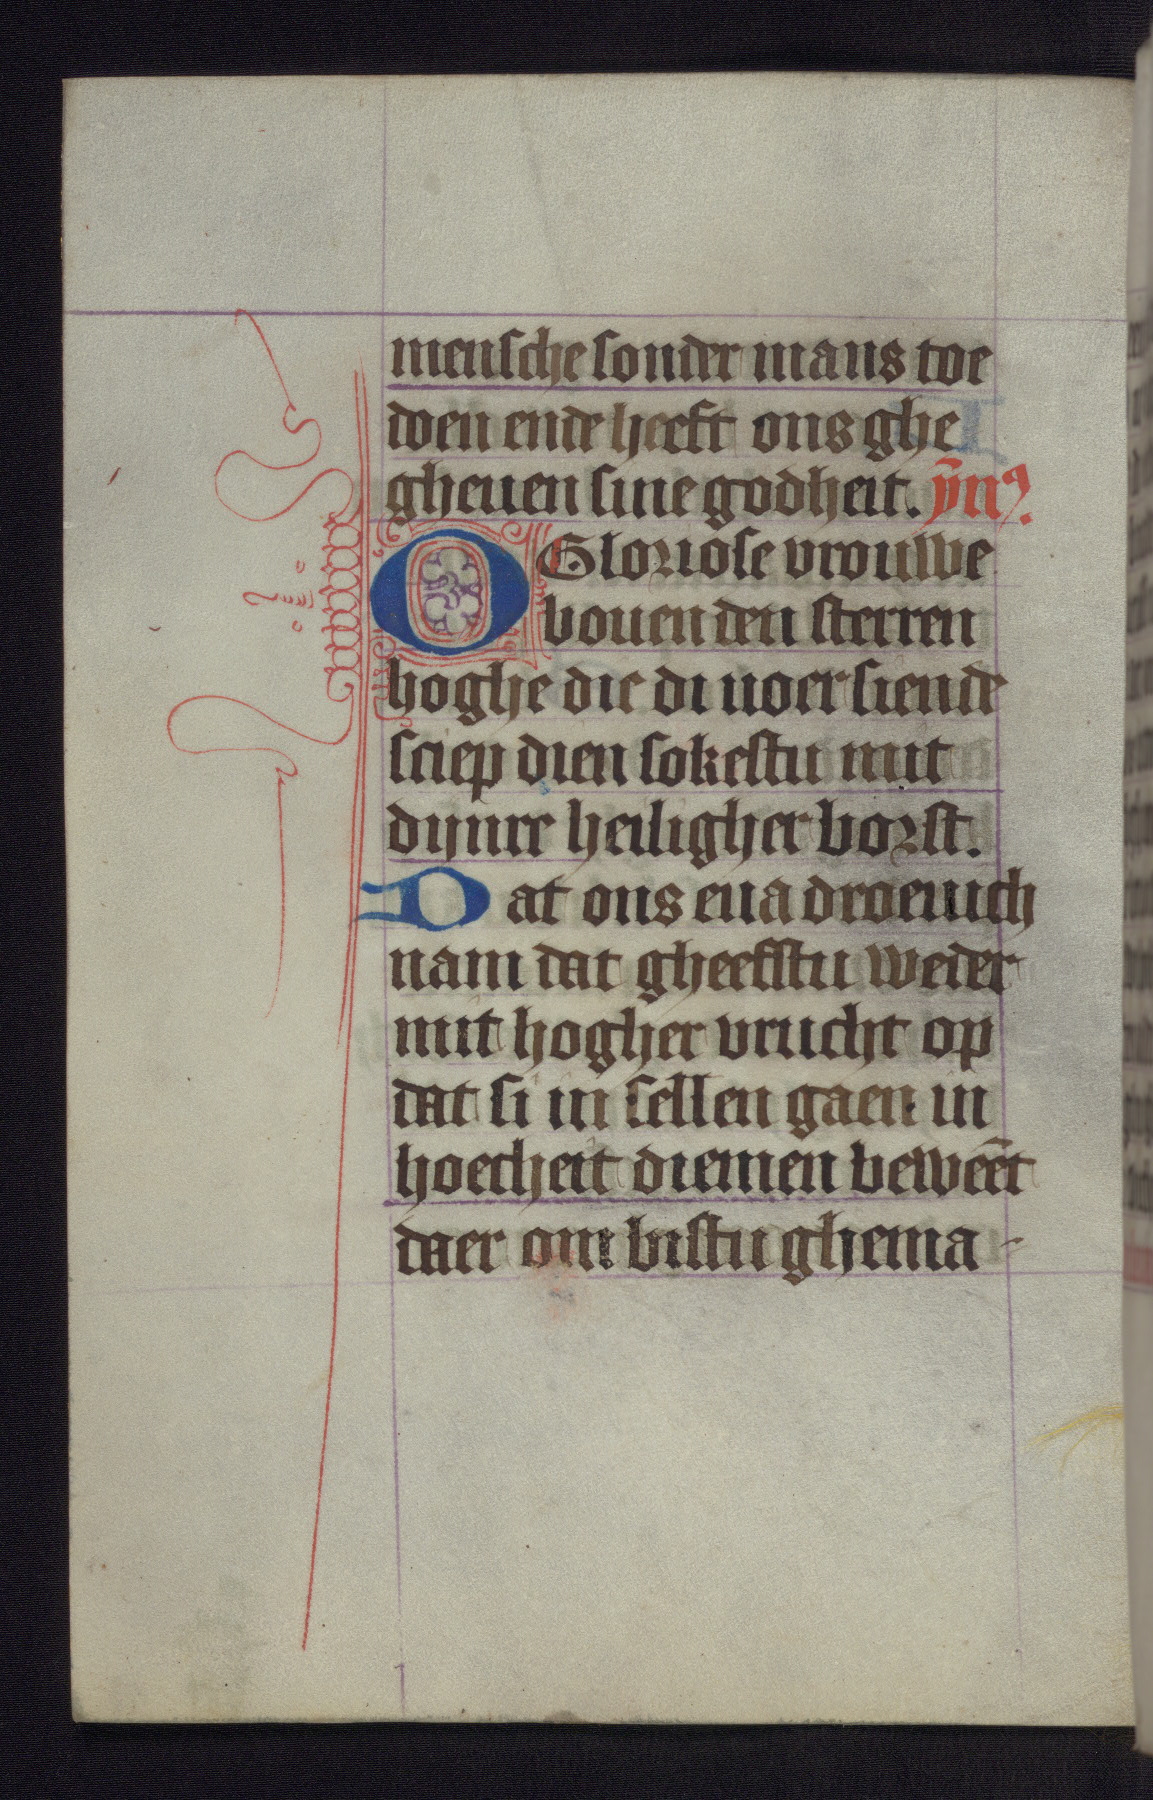 mensche sonder mans toe
doen ende heeft ons ghe
gheuen sine godheit. ȳmꝰ.
O Gloriose vrouwe
bouen den sterren
hoghe die di uoer siende
sciep dien sokestu mit
dijnre heiligher borst.
Dat ons eua droeuich
nam dat gheefstu weder
mit hogher vrucht op
dat si in sellen gaen in
hoecheit die men bewēēt
daer om bistu ghema-